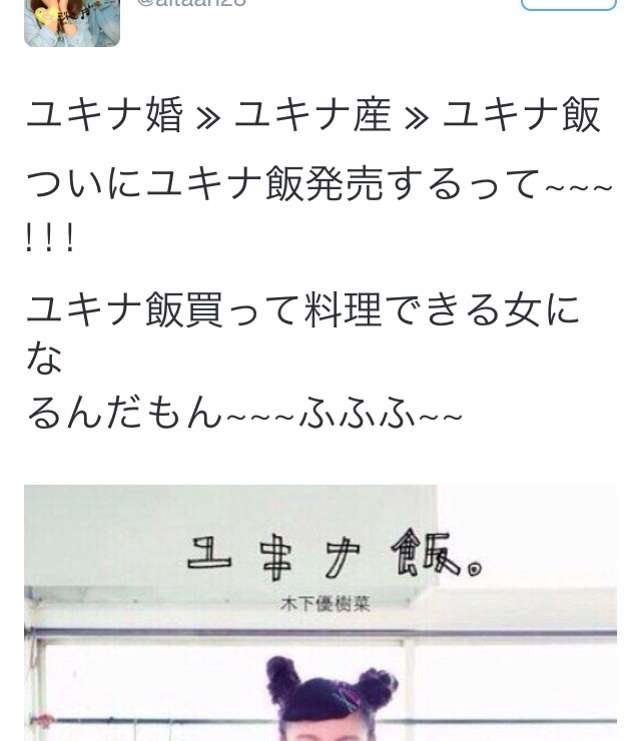 ユキナ婚 ≫ ユキナ産 ≫ ユキナ飯
ついにユキナ飯発売するって~~~
!!!
ユキナ飯買って料理できる女に
な
るんだもん~~~ふふふ~~
ユキナ飯。
木下優樹菜